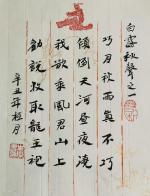 白露秋聲之一
巧月秋雨真不巧
傾倒天河晝夜澆
我欲乘風君山上
勸說收取龍王袍
辛丑年桂月